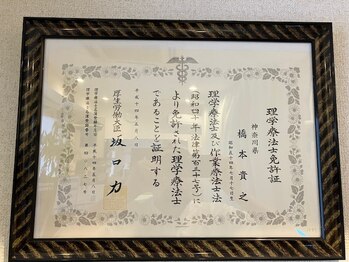 理学療法士免許証
神奈川県
橋本貴之
理学療法士及び作業療法士法
(昭和四十年法律第百三十七号)に
より免許された理学療法士
であることを証明する
平成十四年五月八日
厚生労働大臣 坂口力